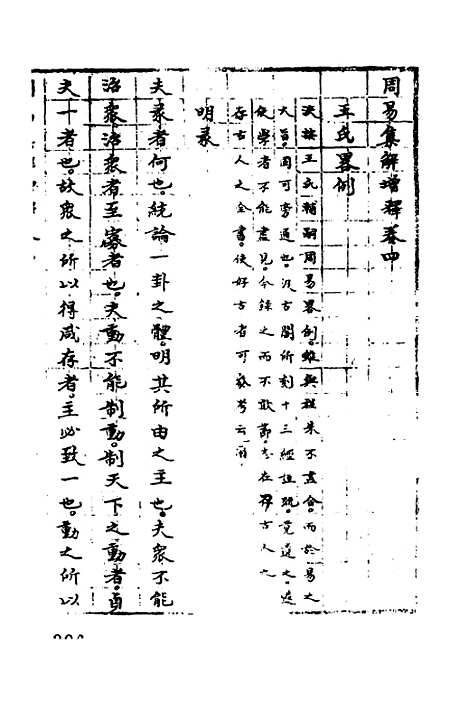 周易集解增釋卷四
王氏畧例
漢按王氏輔嗣周易畧例雖與程朱不盡合而於易之
大旨固可旁通也汲古閣所刻十三經註疏竟遺之
使學者不能盡見今錄之而不敢節者在存古人之
存古人之全書使好古者可叅考云爾
明彖
夫彖者何也統論一卦之體明其所由之主也夫衆不能
治衆治衆者至寡者也夫動不能制動制天下之動者貞
夫一者也故衆之所以得咸存者主必致一也動之所以